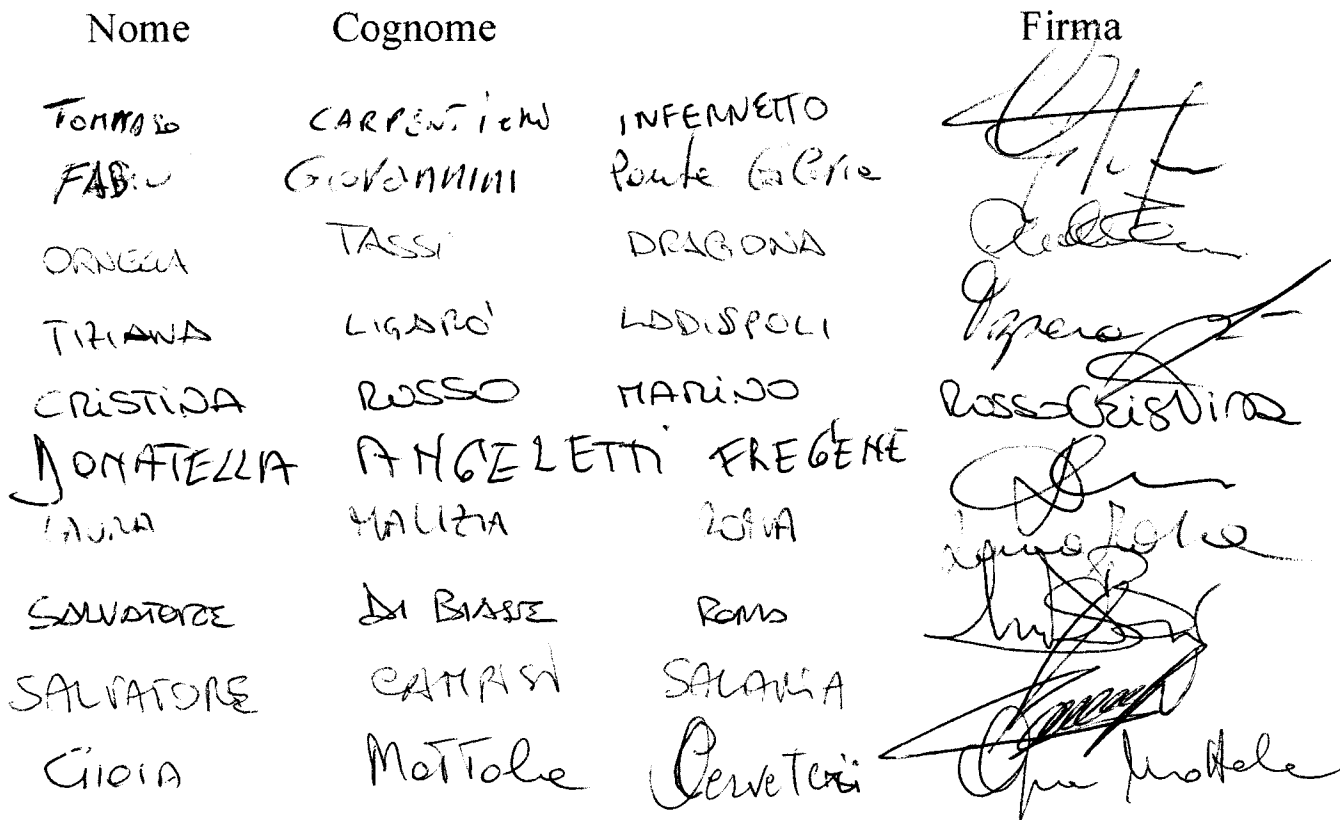 Nome Cognome Firma
TOMMASO CARPENTIERI INFERNETTO
FABIO Giovannini Ponte Galeria
ORNELLA TASSI DRAGONA
TIZIANA LIGARO' LADISPOLI
CRISTINA ROSSO MARINO ROSSO CRISTINA
DONATELLA ANGELETTI FREGENE
LAURA MALIZIA ROMA
SALVATORE DI BIASE ROMA
SALVATORE CAMPISI SALARIA
GIOIA Mottola Cerveteri